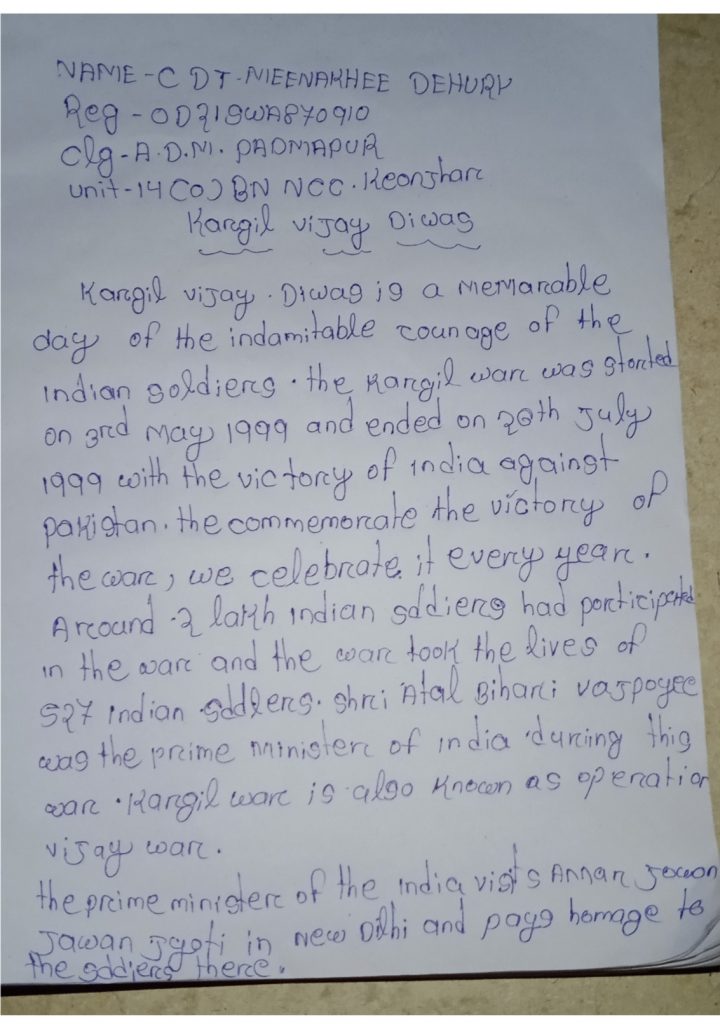 NAME - CDT - MEENAKHEE DEHURY
Reg - OD219WA870910
Clg - A.D.M. PADMAPUR
unit - 14(O) BN NCC. Keonjhar
Kargil vijay Diwas
Kargil vijay . Diwas is a memarable
day of the indamitable counage of the
indian soldiers . the Kargil war was started
on 3rd may 1999 and ended on 26th July
1999 with the victory of india against
pakistan. the commemorate the victory of
the war, we celebrate it every year.
Around 2 lakh indian soldiers had participated
in the war and the war took the lives of
527 indian soldiers. shri Atal Bihari vajpayee
was the prime minister of india during this
war . Kargil war is also known as operation
vijay war.
the prime minister of the india visits Amar jawan
Jawan jyoti in New Dilhi and pays homage to
the soldiers there.